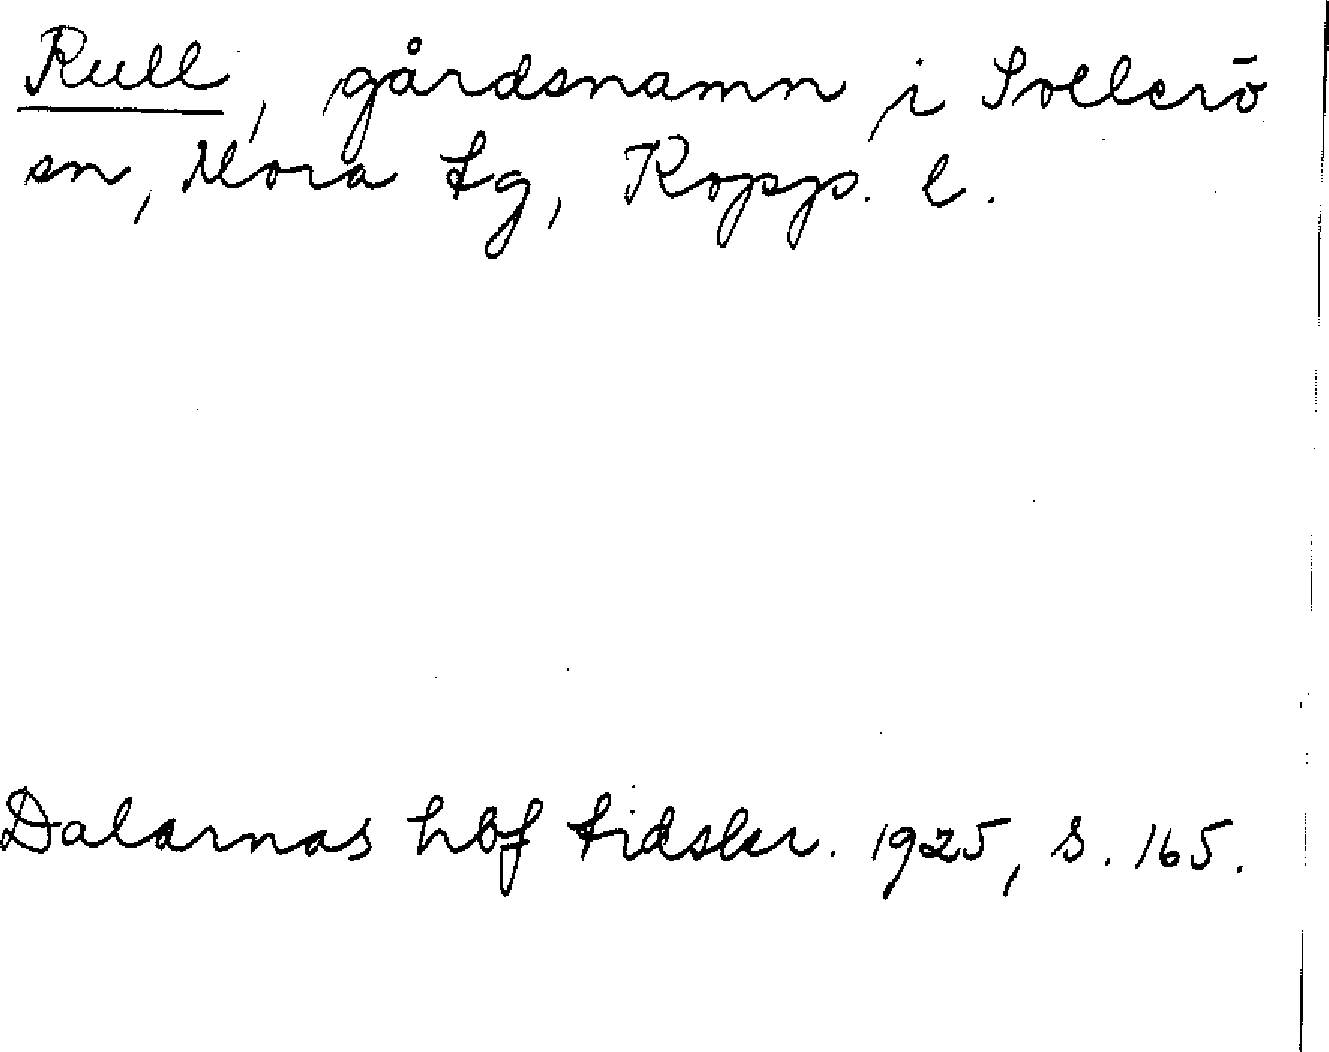 Rull, gårdsnamn i Sollerö
sn, Mora tg, Kopp. l.
Dalarnas hbf tidskr. 1925, s. 165.